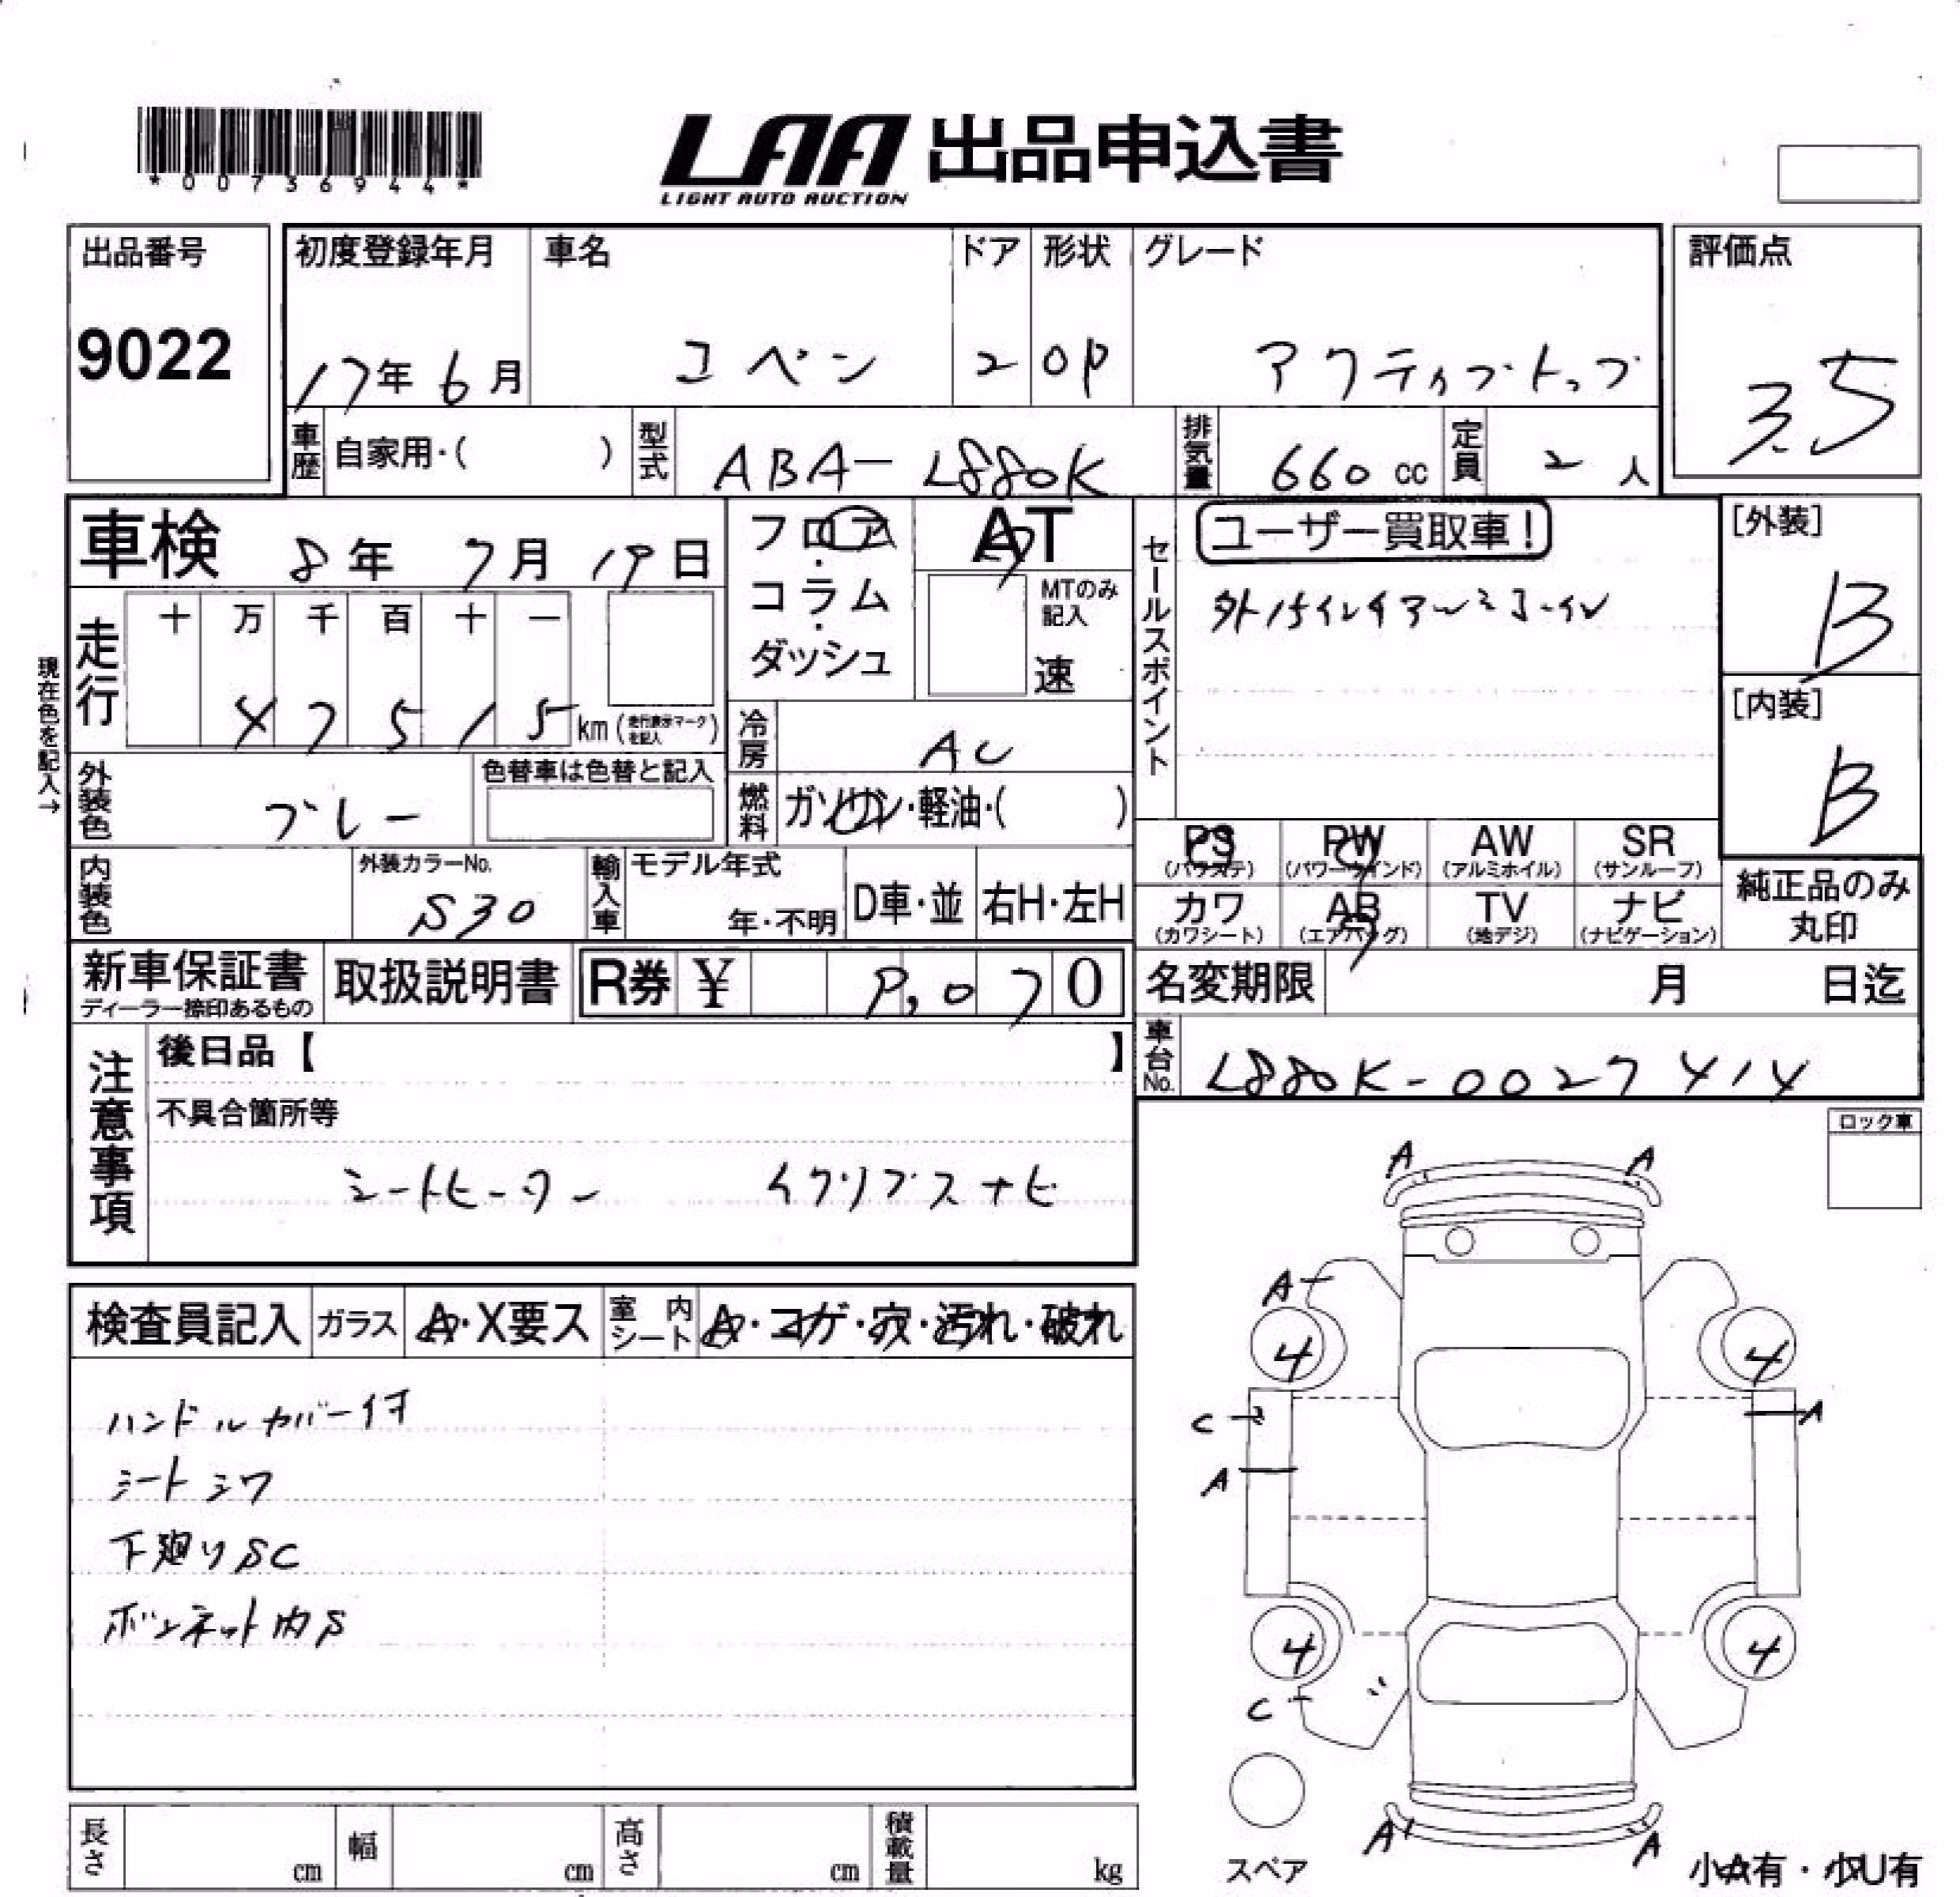 *00736944*
LAA 出品申込書
LIGHT AUTO AUCTION
出品番号
9022
初度登録年月
17年 6月
車名
コペン
ドア
2
形状
OP
グレード
アクティブトップ
評価点
3.5
車歴 自家用・( )
型式 ABA-L880K
排気量 660 cc
定員 2 人
車検 8年 7月 19日
フロア・コラム・ダッシュ
AT
MTのみ記入
速
セールスポイント
ユーザー買取車!
[外装]
B
[内装]
B
現在色を記入→
走行
十 万 千 百 十 一
4 7 5 1 5 km (走行表示マークを記入)
冷房 AC
外装色 グレー
色替車は色替と記入
燃料 ガソリン・軽油・( )
PS (パワステ) PW (パワーウインド) AW (アルミホイル) SR (サンルーフ)
カワ (カワシート) AB (エアバッグ) TV (地デジ) ナビ (ナビゲーション)
純正品のみ丸印
内装色
外装カラーNo.
S30
輸入車 モデル年式
年・不明
D車・並
右H・左H
新車保証書
ディーラー捺印あるもの
取扱説明書
R券 ¥ 9,070
名変期限 月 日迄
車台No. L880K-0027414
注意事項
後日品【 】
不具合箇所等
シートヒーター イクリプスナビ
ロック車
検査員記入
ガラス A・X要ス
室内シート A・コゲ・穴・汚れ・破れ
ハンドルカバー付
シートシワ
下廻りSC
ボンネット内S
A A
A
4 4
C A
A
4 4
C
A A
スペア
小A有・小U有
長さ cm
幅 cm
高さ cm
積載量 kg